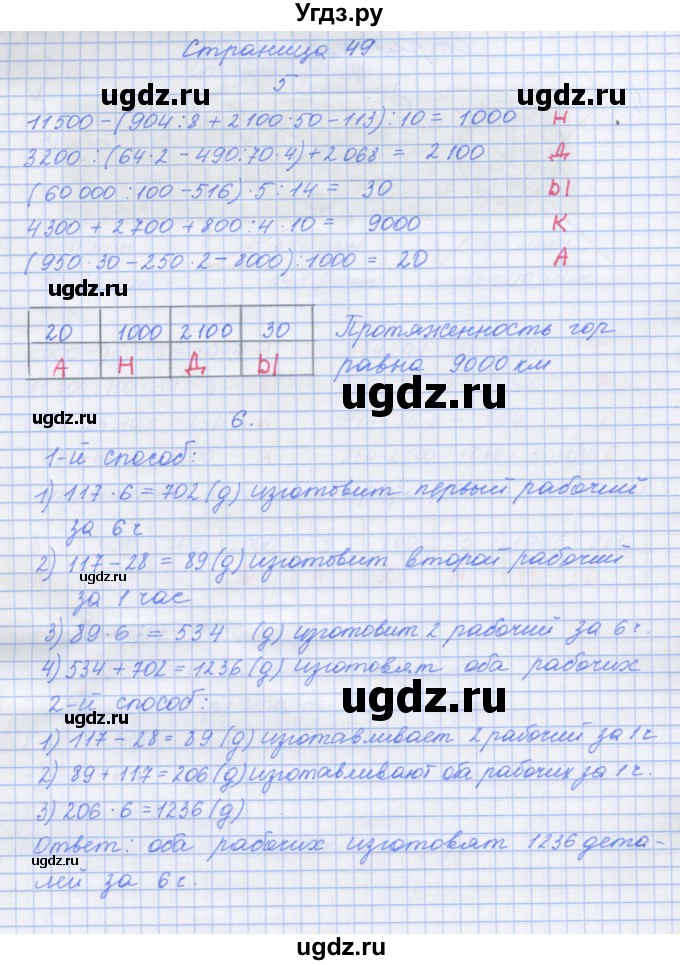 Угдз.ру
Страница 49
5
11500 - (904 : 8 + 2100 · 50 - 113) : 10 = 1000 Н
ugdz.ru ugdz.ru
3200 : (64 · 2 - 490 : 70 · 4) + 2068 = 2100 Д
(60 000 : 100 - 516) · 5 : 14 = 30 Ы
4300 + 2700 + 800 : 4 · 10 = 9000 К
(950 · 30 - 250 · 2 - 8000) : 1000 = 20 А
ugdz.ru
20 1000 2100 30 Протяженность гор
А Н Д Ы равна 9000 км
ugdz.ru
ugdz.ru
6.
1-й способ:
1) 117 · 6 = 702 (д) изготовит первый рабочий
за 6 ч
2) 117 - 28 = 89 (д) изготовит второй рабочий
ugdz.ru
за 1 час
3) 89 · 6 = 534 (д) изготовит 2 рабочий за 6 ч.
4) 534 + 702 = 1236 (д) изготовят оба рабочих
ugdz.ru
2-й способ:
1) 117 - 28 = 89 (д) изготавливает 2 рабочий за 1 ч
2) 89 + 117 = 206 (д) изготавливают оба рабочих за 1 ч.
3) 206 · 6 = 1236 (д)
Ответ: оба рабочих изготовят 1236 дета-
ugdz.ru
лей за 6 ч.
ugdz.ru ugdz.ru
ugdz.ru